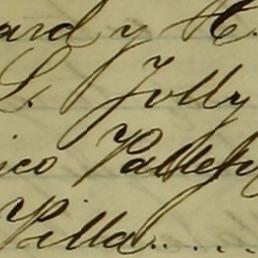 ard y H.
L. Jolly
ico Vallejo
Villa....